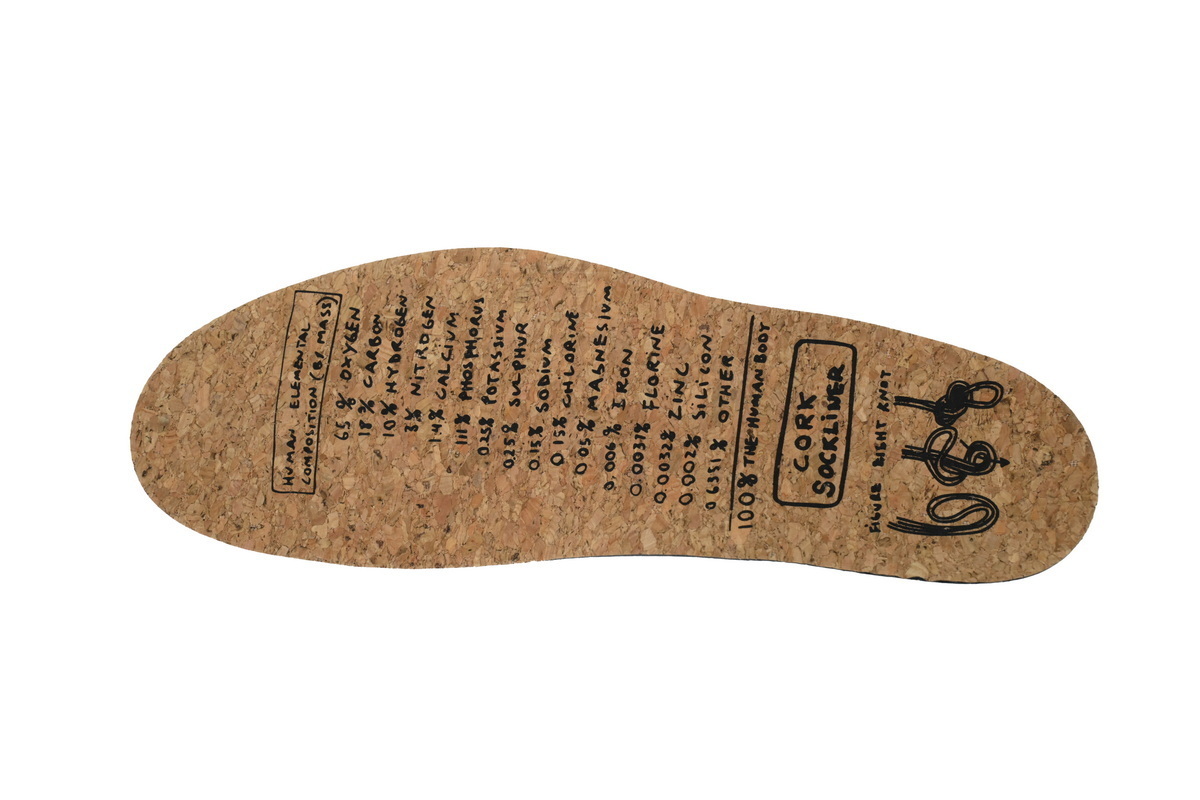 HUMAN ELEMENTAL
COMPOSITION (BY MASS)
65% OXYGEN
18% CARBON
10% HYDROGEN
3% NITROGEN
1.4% CALCIUM
1.1% PHOSPHORUS
0.25% POTASSIUM
0.25% SULPHUR
0.15% SODIUM
0.15% CHLORINE
0.05% MAGNESIUM
0.006% IRON
0.0037% FLORINE
0.0032% ZINC
0.002% SILICON
0.6351% OTHER
100% THE HUMAN BODY
CORK
SOCKLINER
FIGURE EIGHT KNOT